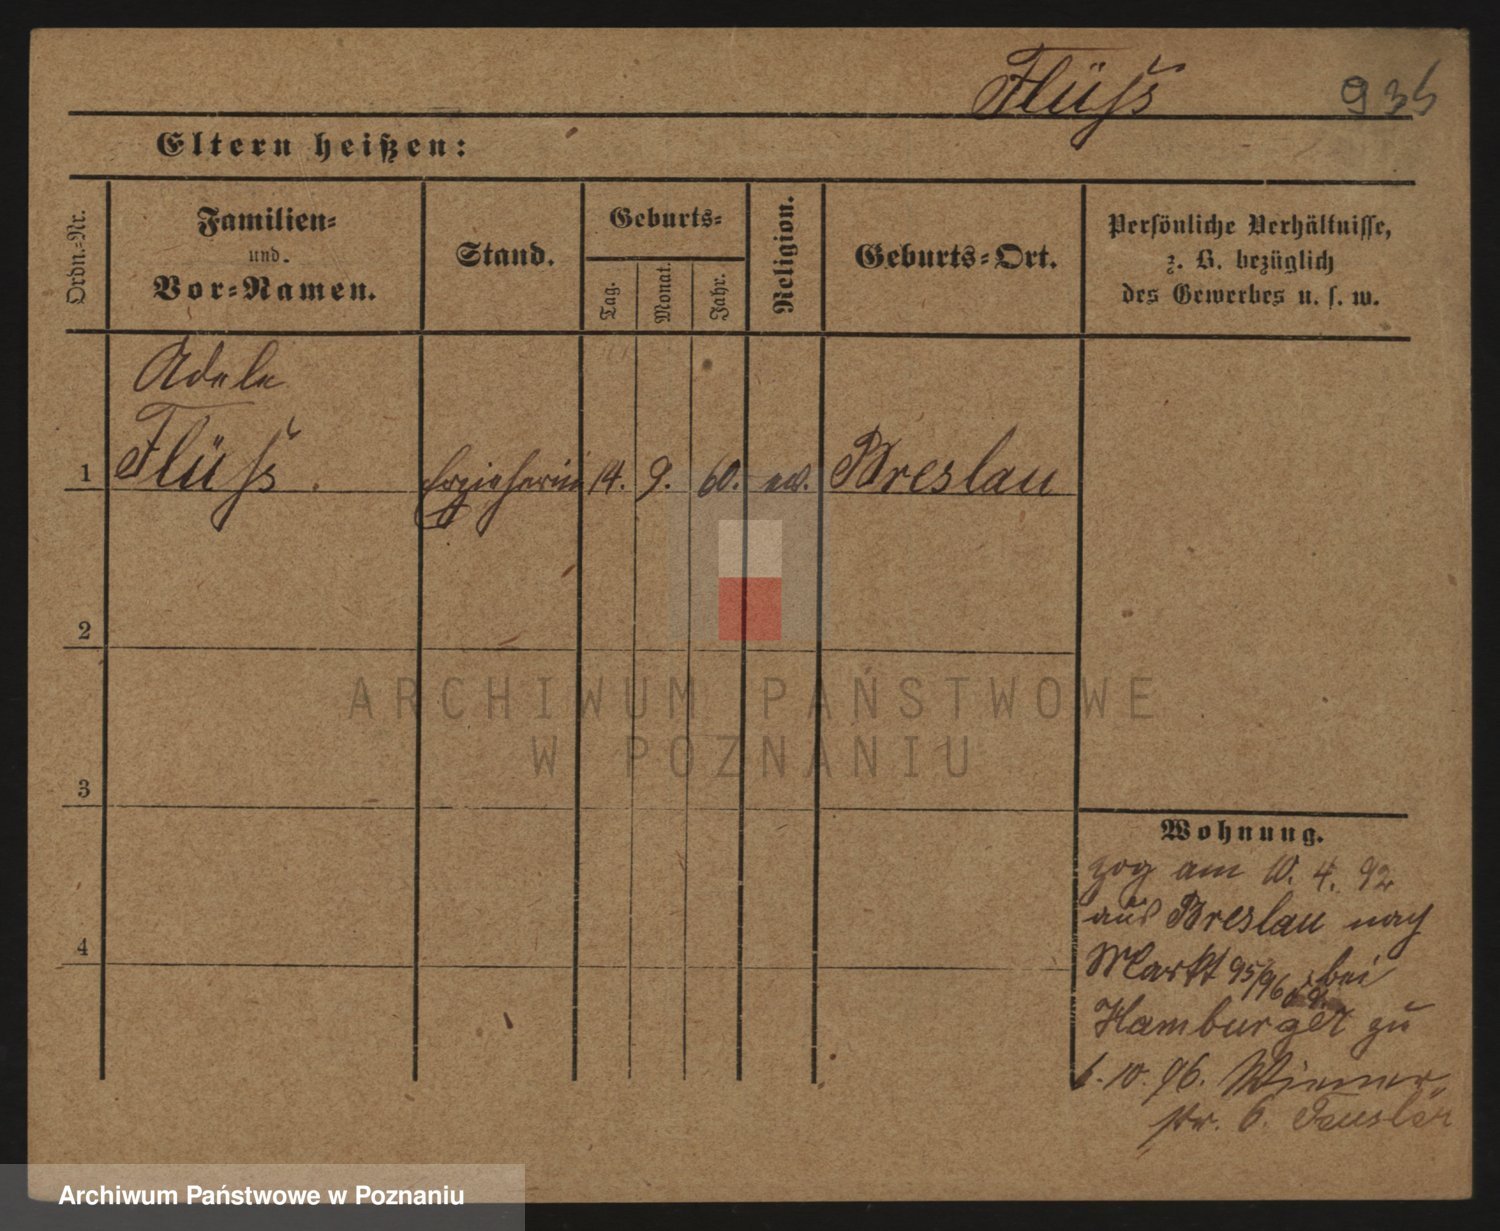 Flüss 935
Eltern heißen:
Ordn.=Nr.
Familien=
und
Vor=Namen.
Stand.
Geburts=
Tag.
Monat.
Jahr.
Religion.
Geburts=Ort.
Persönliche Verhältnisse,
z. B. bezüglich
des Gewerbes u. s. w.
Adele
1 Flüss. Erzieherin 14. 9. 60. ev. Breslau
2
3
4
Wohnung.
zog am 10. 4. 92
aus Breslau nach
Markt 95/96 bei
Hamburger zu
6. 10. 96. Wiener
str. 6.
ARCHIWUM PAŃSTWOWE
W POZNANIU
Archiwum Państwowe w Poznaniu